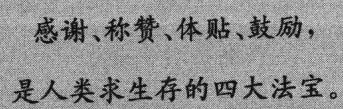 感谢、称赞、体贴、鼓励，
是人类求生存的四大法宝。